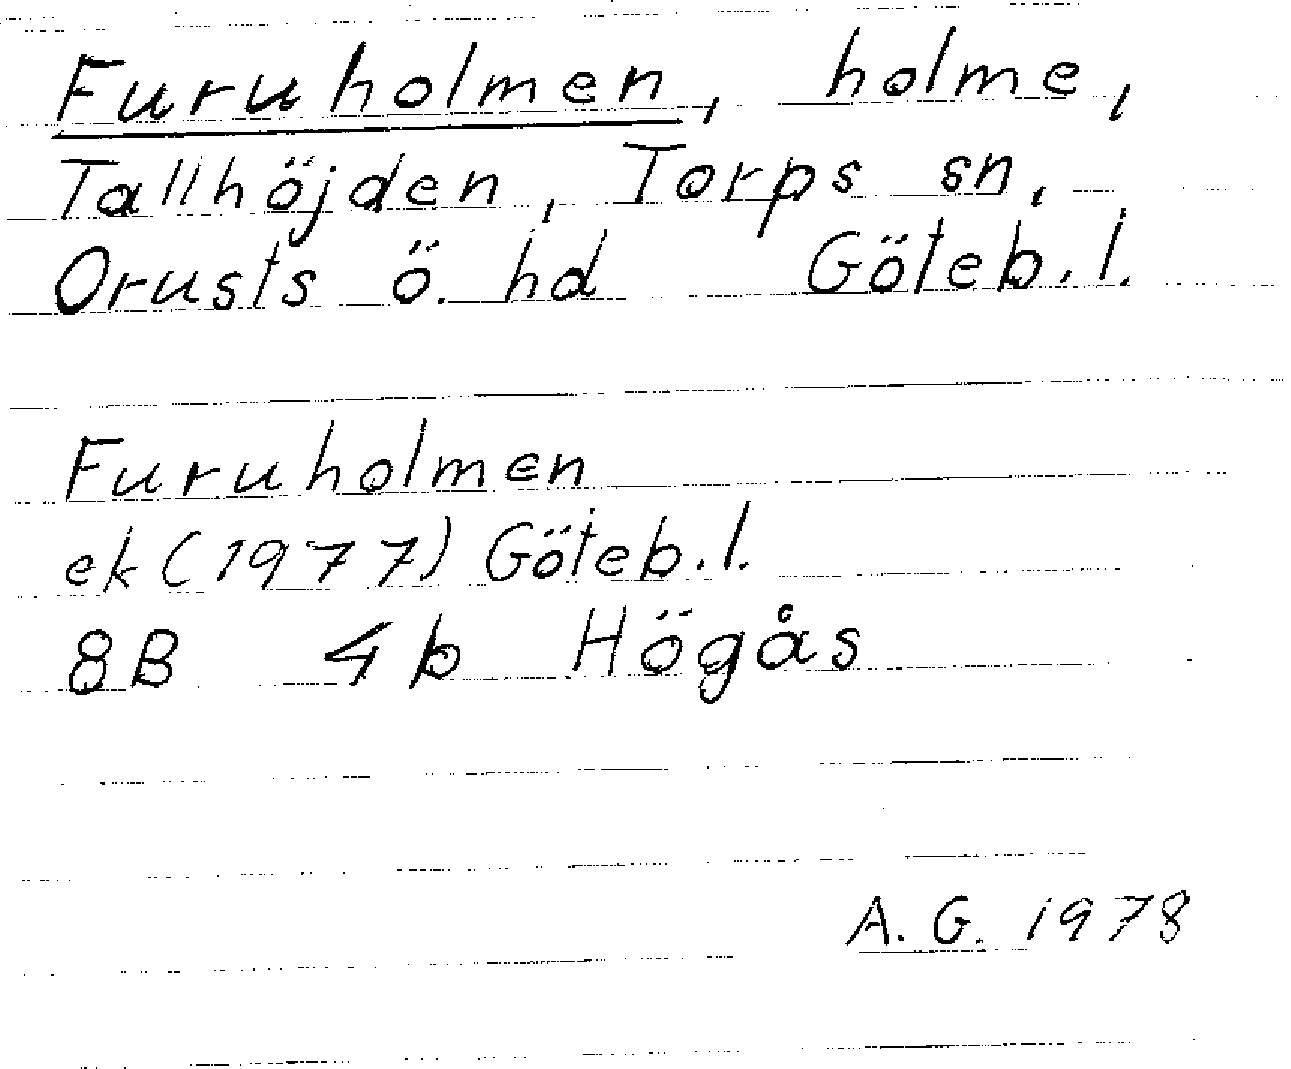 Furuholmen, holme,
Tallhöjden, Torps sn,
Orusts ö. hd Göteb. l.
Furuholmen
ek (1977) Göteb. l.
8B 4b Högås
A. G. 1978